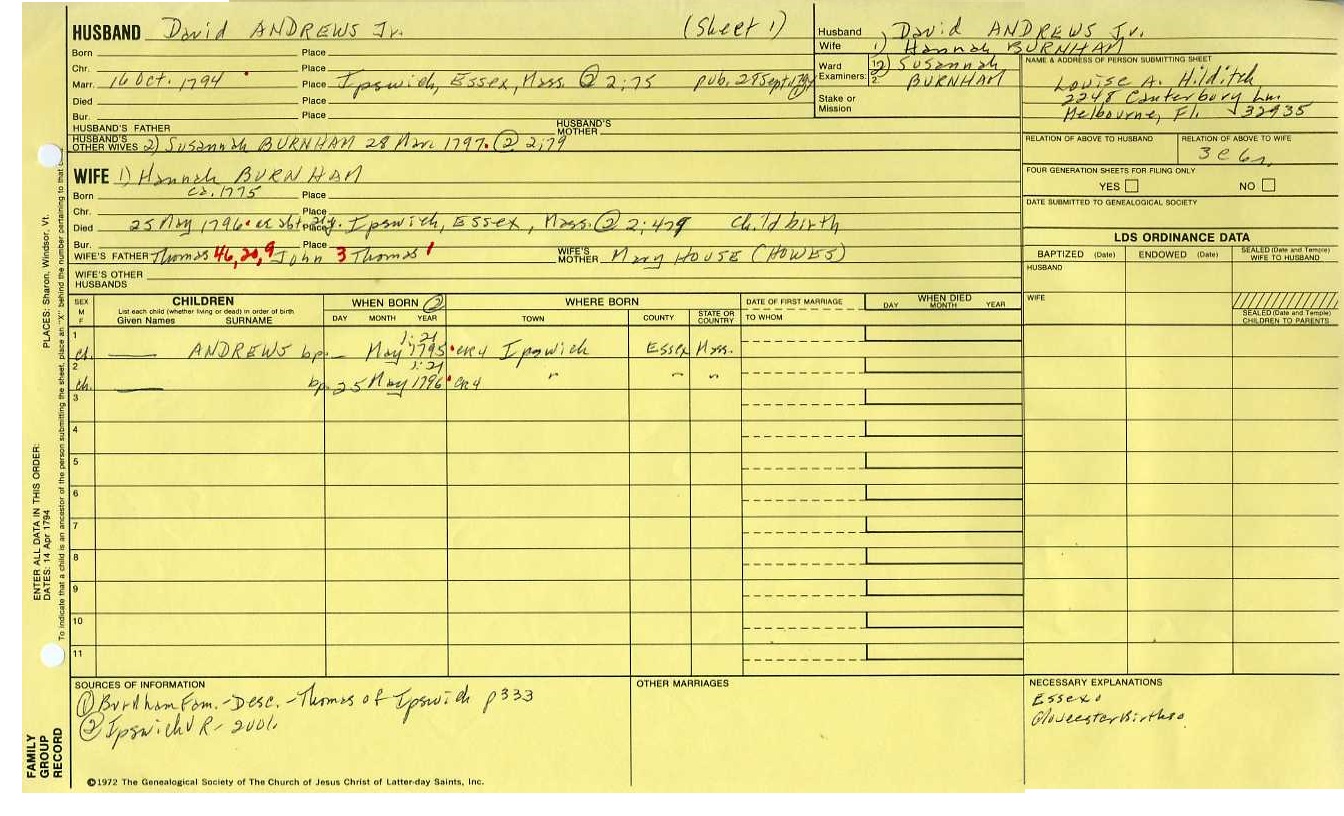 HUSBAND David ANDREWS Jr. (Sheet 1)
Born Place
Chr. Place
Marr. 16 Oct. 1794 Place Ipswich, Essex, Mass. ② 2:75 pub. 28 Sept 1794
Died Place
Bur. Place
HUSBAND'S FATHER HUSBAND'S MOTHER
HUSBAND'S OTHER WIVES 2) Susannah BURNHAM 28 Mar. 1797. ② 2:79
Husband David ANDREWS Jr.
Wife 1) Hannah BURNHAM
Ward 2) Susannah
Examiners: 1. 2. BURNHAM
Stake or Mission
NAME & ADDRESS OF PERSON SUBMITTING SHEET
Louise A. Hilditch
2248 Canterbury Ln.
Melbourne, Fl. 32935
RELATION OF ABOVE TO HUSBAND RELATION OF ABOVE TO WIFE
3 c 6 r.
FOUR GENERATION SHEETS FOR FILING ONLY
YES NO
DATE SUBMITTED TO GENEALOGICAL SOCIETY
WIFE 1) Hannah BURNHAM
Born ca. 1775 Place
Chr. Place
Died 25 May 1796 Place Ipswich, Essex, Mass. ② 2:479 Childbirth
Bur. Place
WIFE'S FATHER Thomas 46, 20, 9 John 3 Thomas 1 WIFE'S MOTHER Mary HOUSE (HOWES)
WIFE'S OTHER HUSBANDS
LDS ORDINANCE DATA
BAPTIZED (Date) ENDOWED (Date) SEALED (Date and Temple) WIFE TO HUSBAND
HUSBAND
WIFE
SEALED (Date and Temple) CHILDREN TO PARENTS
SEX M F CHILDREN WHEN BORN ② WHERE BORN DATE OF FIRST MARRIAGE WHEN DIED
List each child (whether living or dead) in order of birth
Given Names SURNAME DAY MONTH YEAR TOWN COUNTY STATE OR COUNTRY TO WHOM DAY MONTH YEAR
1 1:21
ch. ANDREWS bp. May 1795 CR4 Ipswich Essex Mass.
2 1:21
ch. bp. 25 May 1796 CR4 " " "
3
4
5
6
7
8
9
10
11
SOURCES OF INFORMATION
① Burnham Fam.-Desc.-Thomas of Ipswich p333
② Ipswich VR-
OTHER MARRIAGES
NECESSARY EXPLANATIONS
Essex
Gloucester Births
©1972 The Genealogical Society of The Church of Jesus Christ of Latter-day Saints, Inc.
FAMILY GROUP RECORD
ENTER ALL DATA IN THIS ORDER:
DATES: 14 Apr 1794
PLACES: Sharon, Windsor, Vt.
To indicate that a child is an ancestor of the person submitting the sheet, place an "X" behind the number pertaining to that